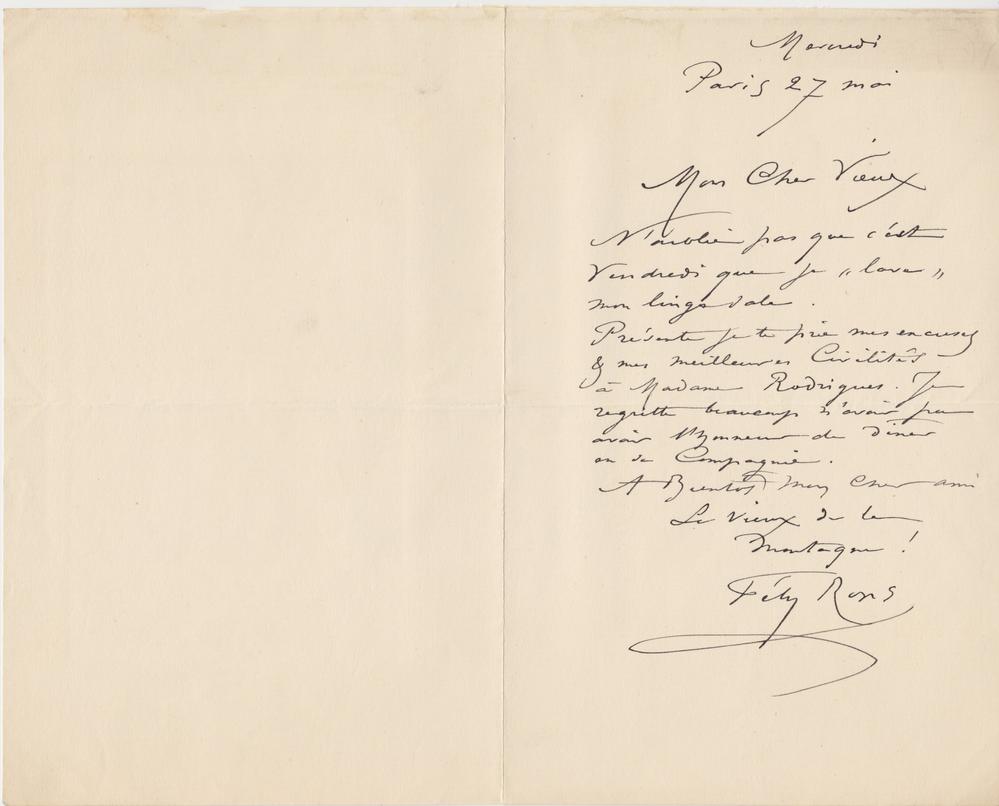 Mercredi
Paris 27 mai
Mon Cher Vieux
N'oublie pas que c'est
Vendredi que je „lave„
mon linge sale.
Présente je te prie mes excuses
& mes meilleures Civilités
à Madame Rodrigues. Je
regrette beaucoup n'avoir pu
avoir l'honneur de Dîner
en sa Compagnie.
A Bientôt mon Cher ami
Le Vieux de la
montagne !
Fély Rops